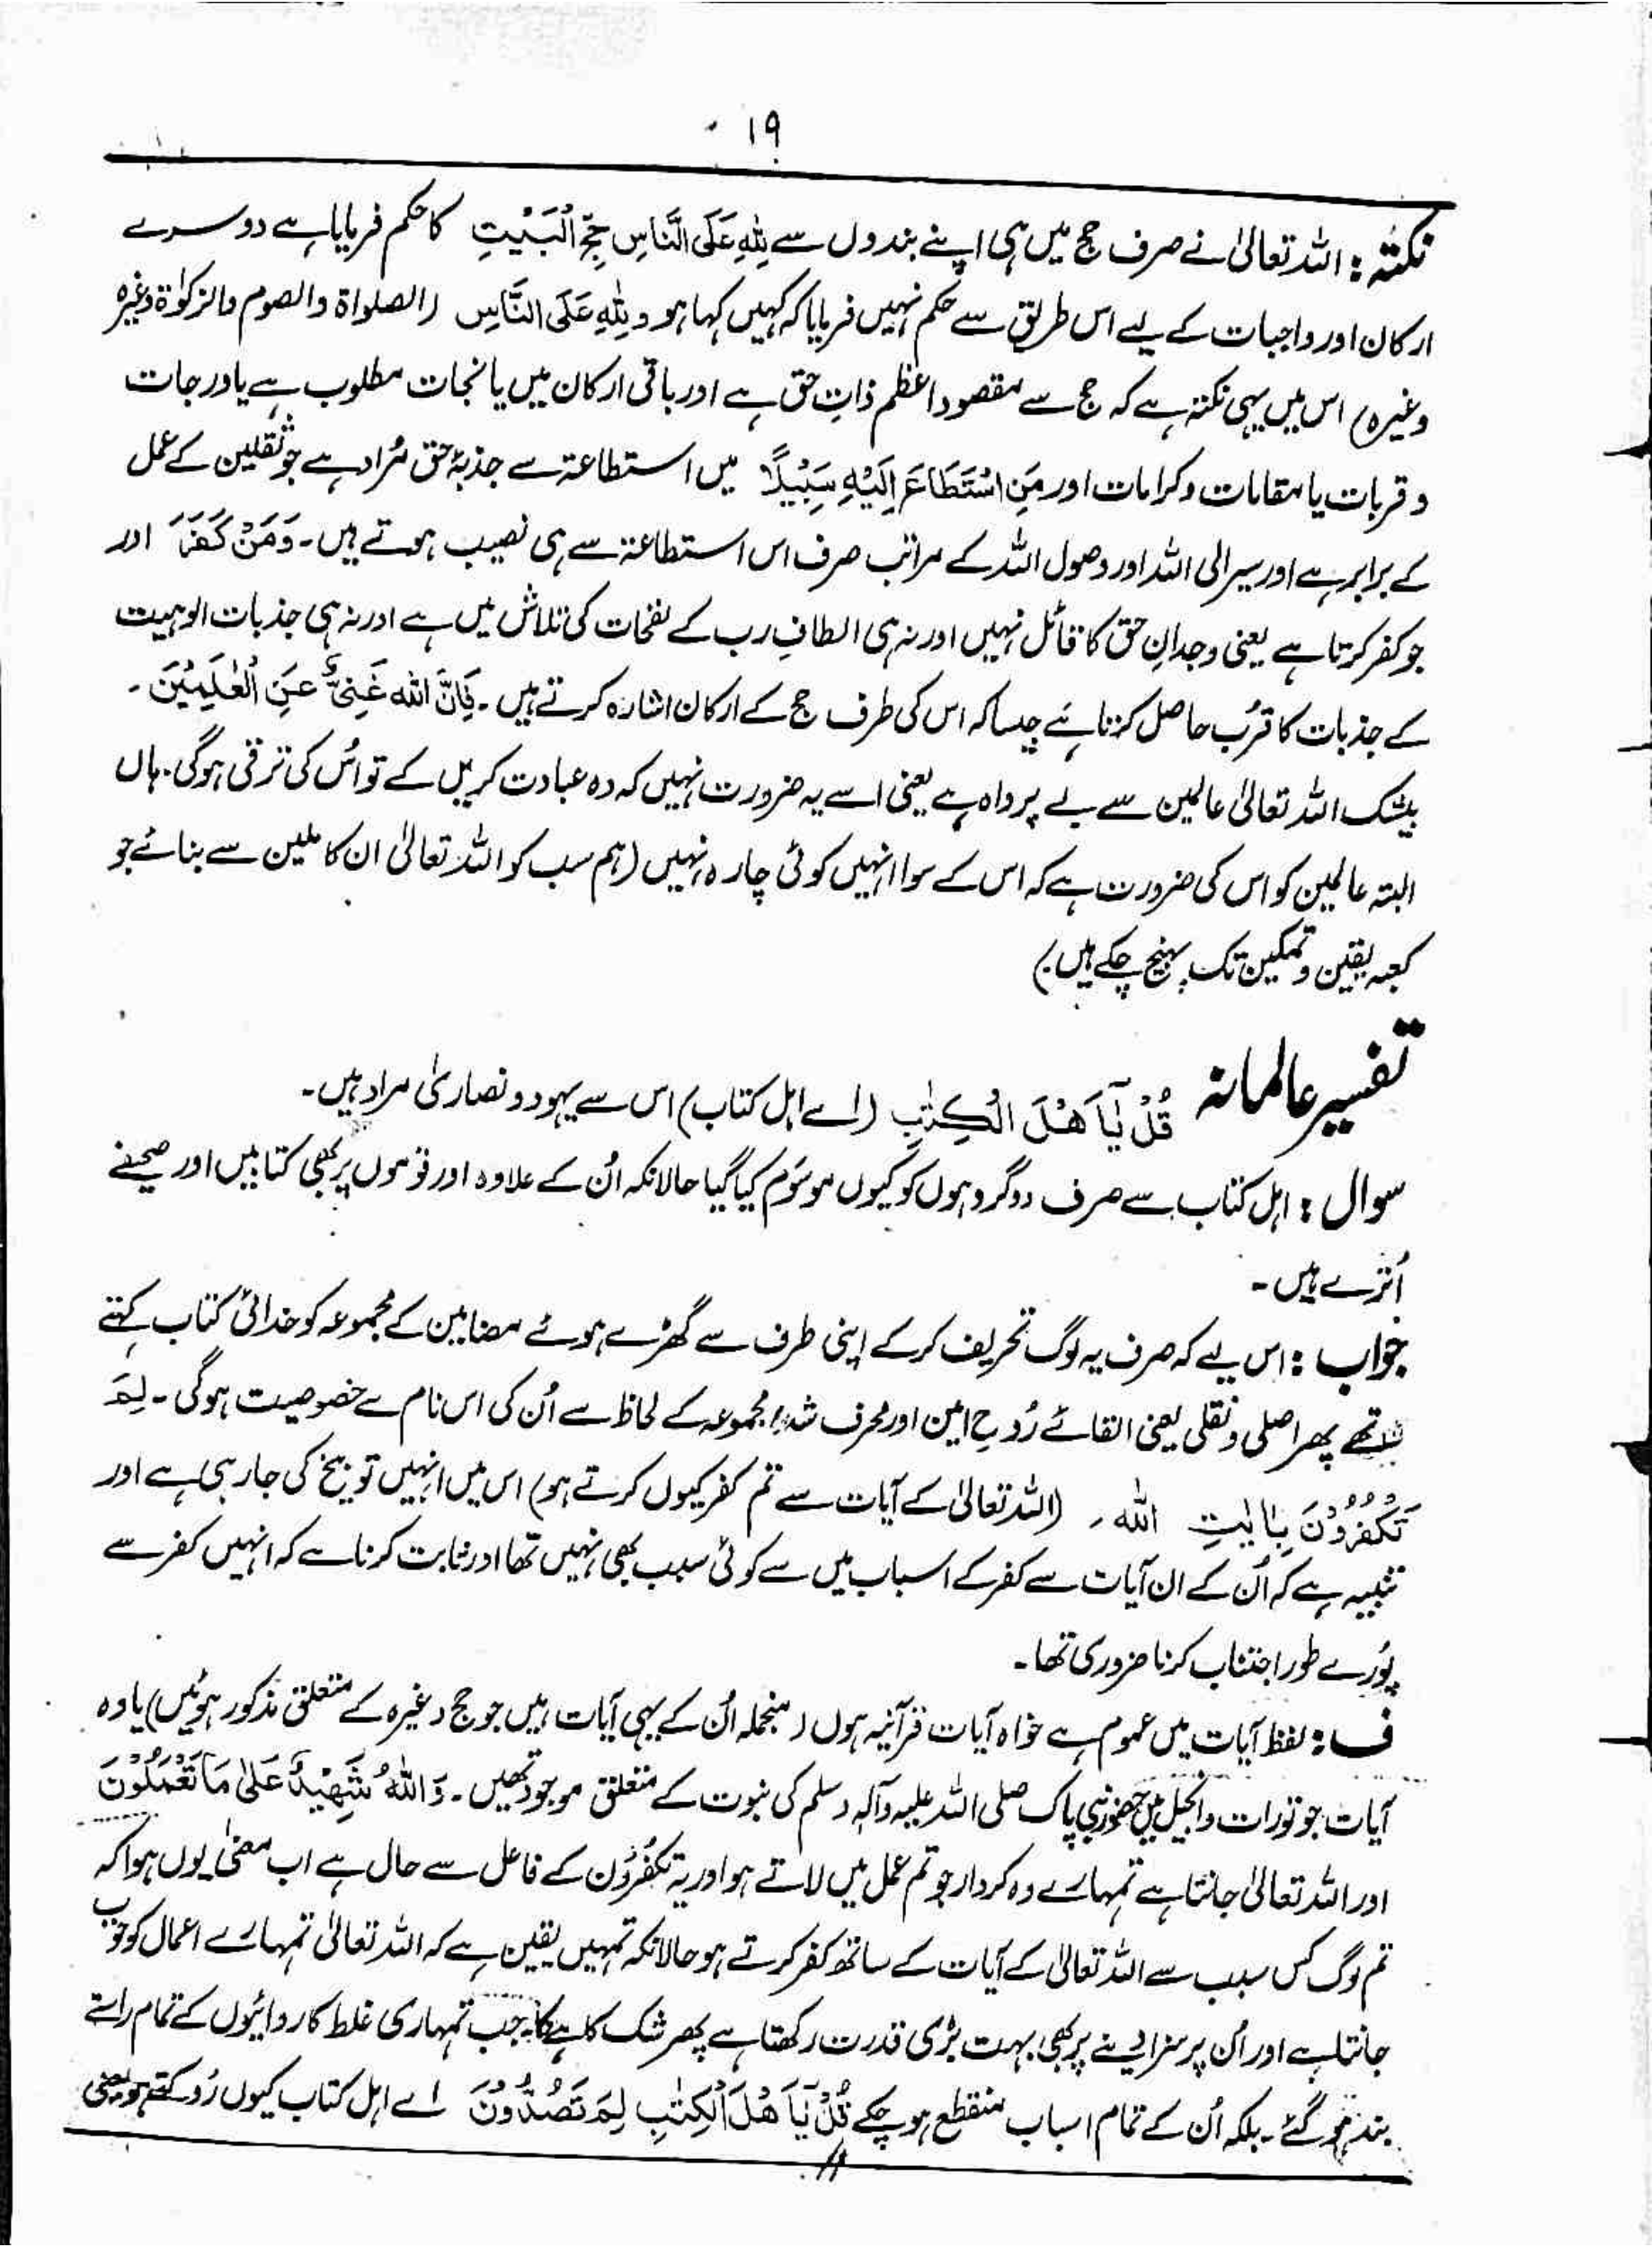 ۱۹
نکتہ : اللہ تعالیٰ نے صرف حج میں ہی اپنے بندوں سے لِلّٰہِ عَلَی النَّاسِ حِجُّ الْبَیْتِ کا حکم فرمایا ہے دوسرے
ارکان اور واجبات کے لیے اس طریق سے حکم نہیں فرمایا کہ کہیں کہا ہو و لِلّٰہِ عَلَی النَّاسِ (الصلواۃ والصوم والزکوٰۃ وغیرہ
وغیرہ) اس میں یہی نکتہ ہے کہ حج سے مقصود اعظم ذاتِ حق ہے اور باقی ارکان میں یا نجات مطلوب ہے یا درجات
و قربات یا مقامات و کرامات اور مَنِ اسْتَطَاعَ اِلَیْہِ سَبِیْلًا میں استطاعۃ سے جذبۂ حق مُراد ہے جو ثقلین کے عمل
کے برابر ہے اور سیر الی اللہ اور وصول اللہ کے مراتب صرف اس استطاعۃ سے ہی نصیب ہوتے ہیں۔ وَمَنْ کَفَرَ اور
جو کفر کرتا ہے یعنی وجدانِ حق کا قائل نہیں اور نہ ہی الطافِ رب کے نفحات کی تلاش میں ہے اور نہ ہی جذبات الوہیت
کے جذبات کا قُرب حاصل کرتا ہے جیسا کہ اس کی طرف حج کے ارکان اشارہ کرتے ہیں۔ فَاِنَّ اللہ غَنِیٌّ عَنِ الْعٰلَمِیْنَ ۔
بیشک اللہ تعالیٰ عالمین سے بے پرواہ ہے یعنی اسے یہ ضرورت نہیں کہ وہ عبادت کریں گے تو اُس کی ترقی ہوگی۔ ہاں
البتہ عالمین کو اس کی ضرورت ہے کہ اس کے سوا انہیں کوئی چارہ نہیں (ہم سب کو اللہ تعالیٰ ان کاملین سے بنائے جو
کعبہ یقین و تمکین تک پہنچ چکے ہیں۔)
تفسیر عالمانہ قُلْ یٰۤاَھْلَ الْکِتٰبِ (اے اہل کتاب) اس سے یہود و نصاریٰ مراد ہیں۔
سوال : اہل کتاب سے صرف دو گروہوں کو کیوں موسُوم کیا گیا حالانکہ اُن کے علاوہ اور قوموں پر بھی کتابیں اور صحیفے
اُترے ہیں۔
جواب : اس لیے کہ صرف یہ لوگ تحریف کرکے اپنی طرف سے گھڑے ہوئے مضامین کے مجموعہ کو خدائی کتاب کہتے
تھے پھر اصلی و نقلی یعنی القائے رُوحِ امین اور محرف شدہ مجموعہ کے لحاظ سے اُن کی اس نام سے خصوصیت ہوگی۔ لِمَ
تَکْفُرُوْنَ بِاٰیٰتِ اللہِ (اللہ تعالیٰ کے آیات سے تم کفر کیوں کرتے ہو) اس میں انہیں توبیخ کی جا رہی ہے اور
تنبیہ ہے کہ اُن کے ان آیات سے کفر کے اسباب میں سے کوئی سبب بھی نہیں تھا اور ثابت کرنا ہے کہ انہیں کفر سے
پُورے طور اجتناب کرنا ضروری تھا۔
ف : لفظ آیات میں عموم ہے خواہ آیات قرآنیہ ہوں (منجملہ اُن کے یہی آیات ہیں جو حج وغیرہ کے متعلق مذکور ہوئیں) یا وہ
آیات جو تورات و انجیل میں حضور نبی پاک صلی اللہ علیہ وآلہ وسلم کی نبوت کے متعلق موجود تھیں۔ وَاللہُ شَھِیْدٌ عَلٰی مَا تَعْمَلُوْنَ
اور اللہ تعالیٰ جانتا ہے تمہارے وہ کردار جو تم عمل میں لاتے ہو اور یہ تکفُرُون کے فاعل سے حال ہے اب معنیٰ یوں ہوا کہ
تم لوگ کس سبب سے اللہ تعالیٰ کے آیات کے ساتھ کفر کرتے ہو حالانکہ تمہیں یقین ہے کہ اللہ تعالیٰ تمہارے اعمال کو خوب
جانتا ہے اور اُن پر سزا دینے پر بھی بہت بڑی قدرت رکھتا ہے پھر شک کاہے کا، جب تمہاری غلط کاروائیوں کے تمام راستے
بند ہو گئے۔ بلکہ اُن کے تمام اسباب منقطع ہو چکے قُلْ یٰۤاَھْلَ الْکِتٰبِ لِمَ تَصُدُّوْنَ اے اہل کتاب کیوں رُوکتے ہو یعنی